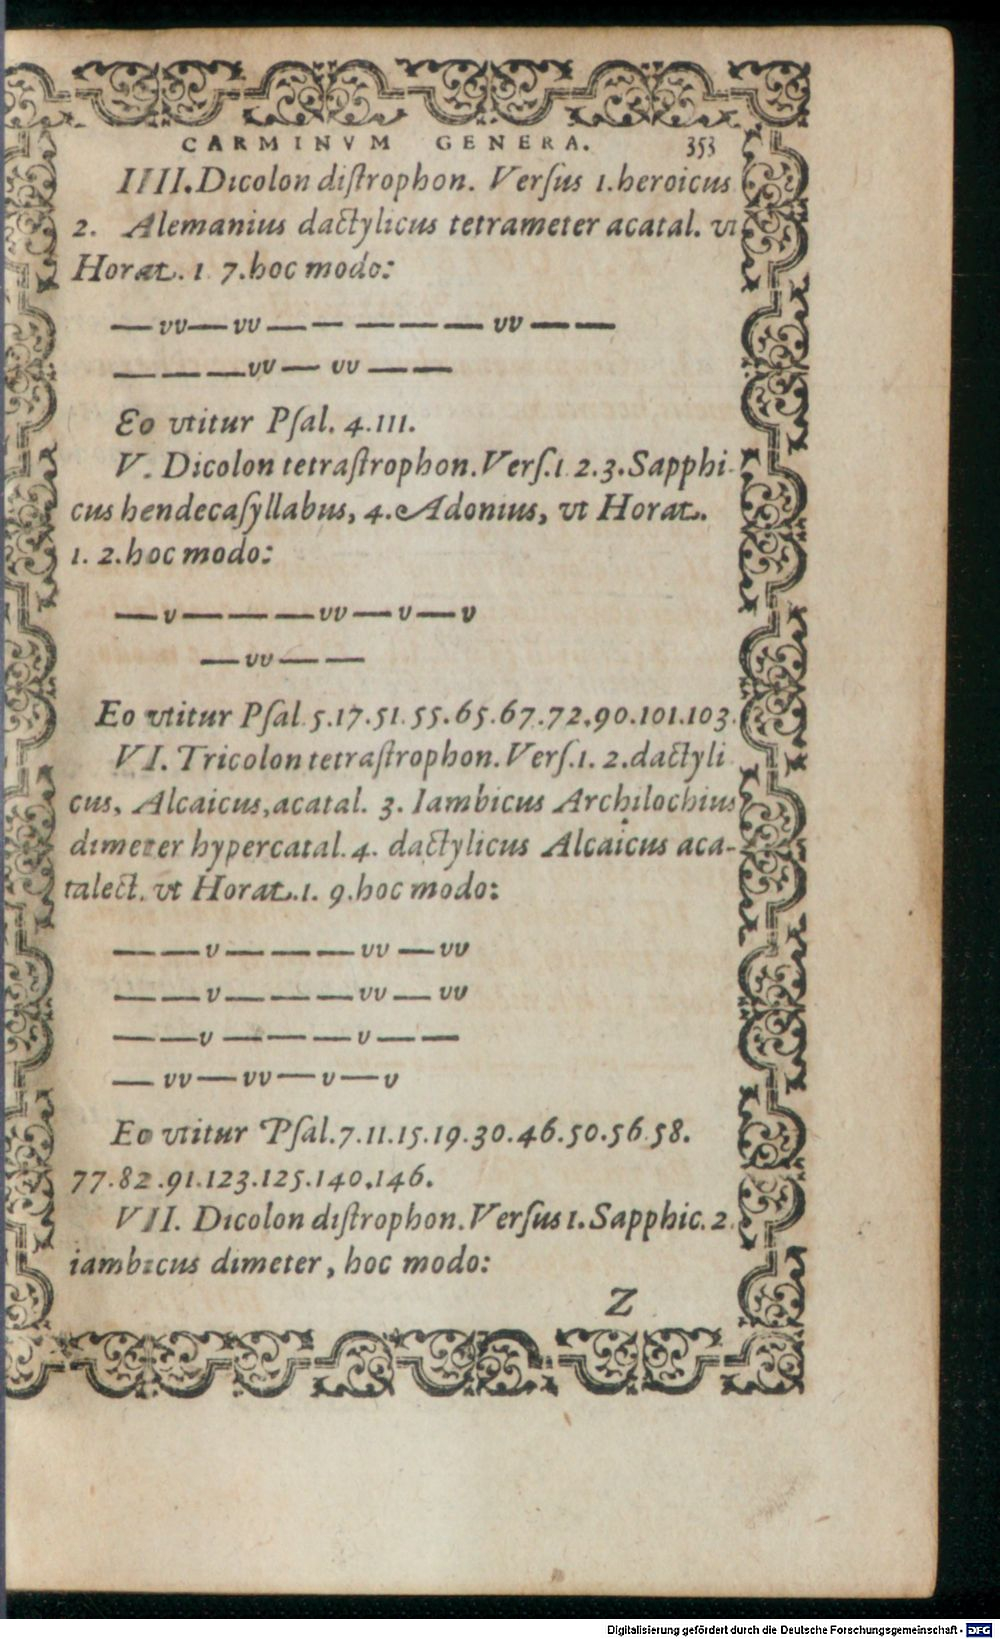 CARMINVM GENERA. 353
IIII. Dicolon diſtrophon. Verſus 1. heroicus
2. Alemanius dactylicus tetrameter acatal. vt
Horat. 1. 7. hoc modo:
— vv — vv — — — — — vv — —
— — — vv — vv — —
Eo vtitur Pſal. 4. 111.
V. Dicolon tetraſtrophon. Verſ. 1 2. 3. Sapphi-
cus hendecaſyllabus, 4. Adonius, vt Horat.
1. 2. hoc modo:
— v — — — vv — v — v
— vv — —
Eo vtitur Pſal. 5. 17. 51. 55. 65. 67. 72. 90. 101. 103.
VI. Tricolon tetraſtrophon. Verſ. 1. 2. dactyli
cus, Alcaicus, acatal. 3. Iambicus Archilochius
dimeter hypercatal. 4. dactylicus Alcaicus aca-
talect. vt Horat. 1. 9. hoc modo:
— — v — — — vv — vv
— — v — — — vv — vv
— — v — — — v — —
— vv — vv — v — v
Eo vtitur Pſal. 7. 11. 15. 19. 30. 46. 50. 56. 58.
77. 82. 91. 123. 125. 140. 146.
VII. Dicolon diſtrophon. Verſus 1. Sapphic. 2.
iambicus dimeter, hoc modo:
Z
Digitalisierung gefördert durch die Deutsche Forschungsgemeinschaft - DFG